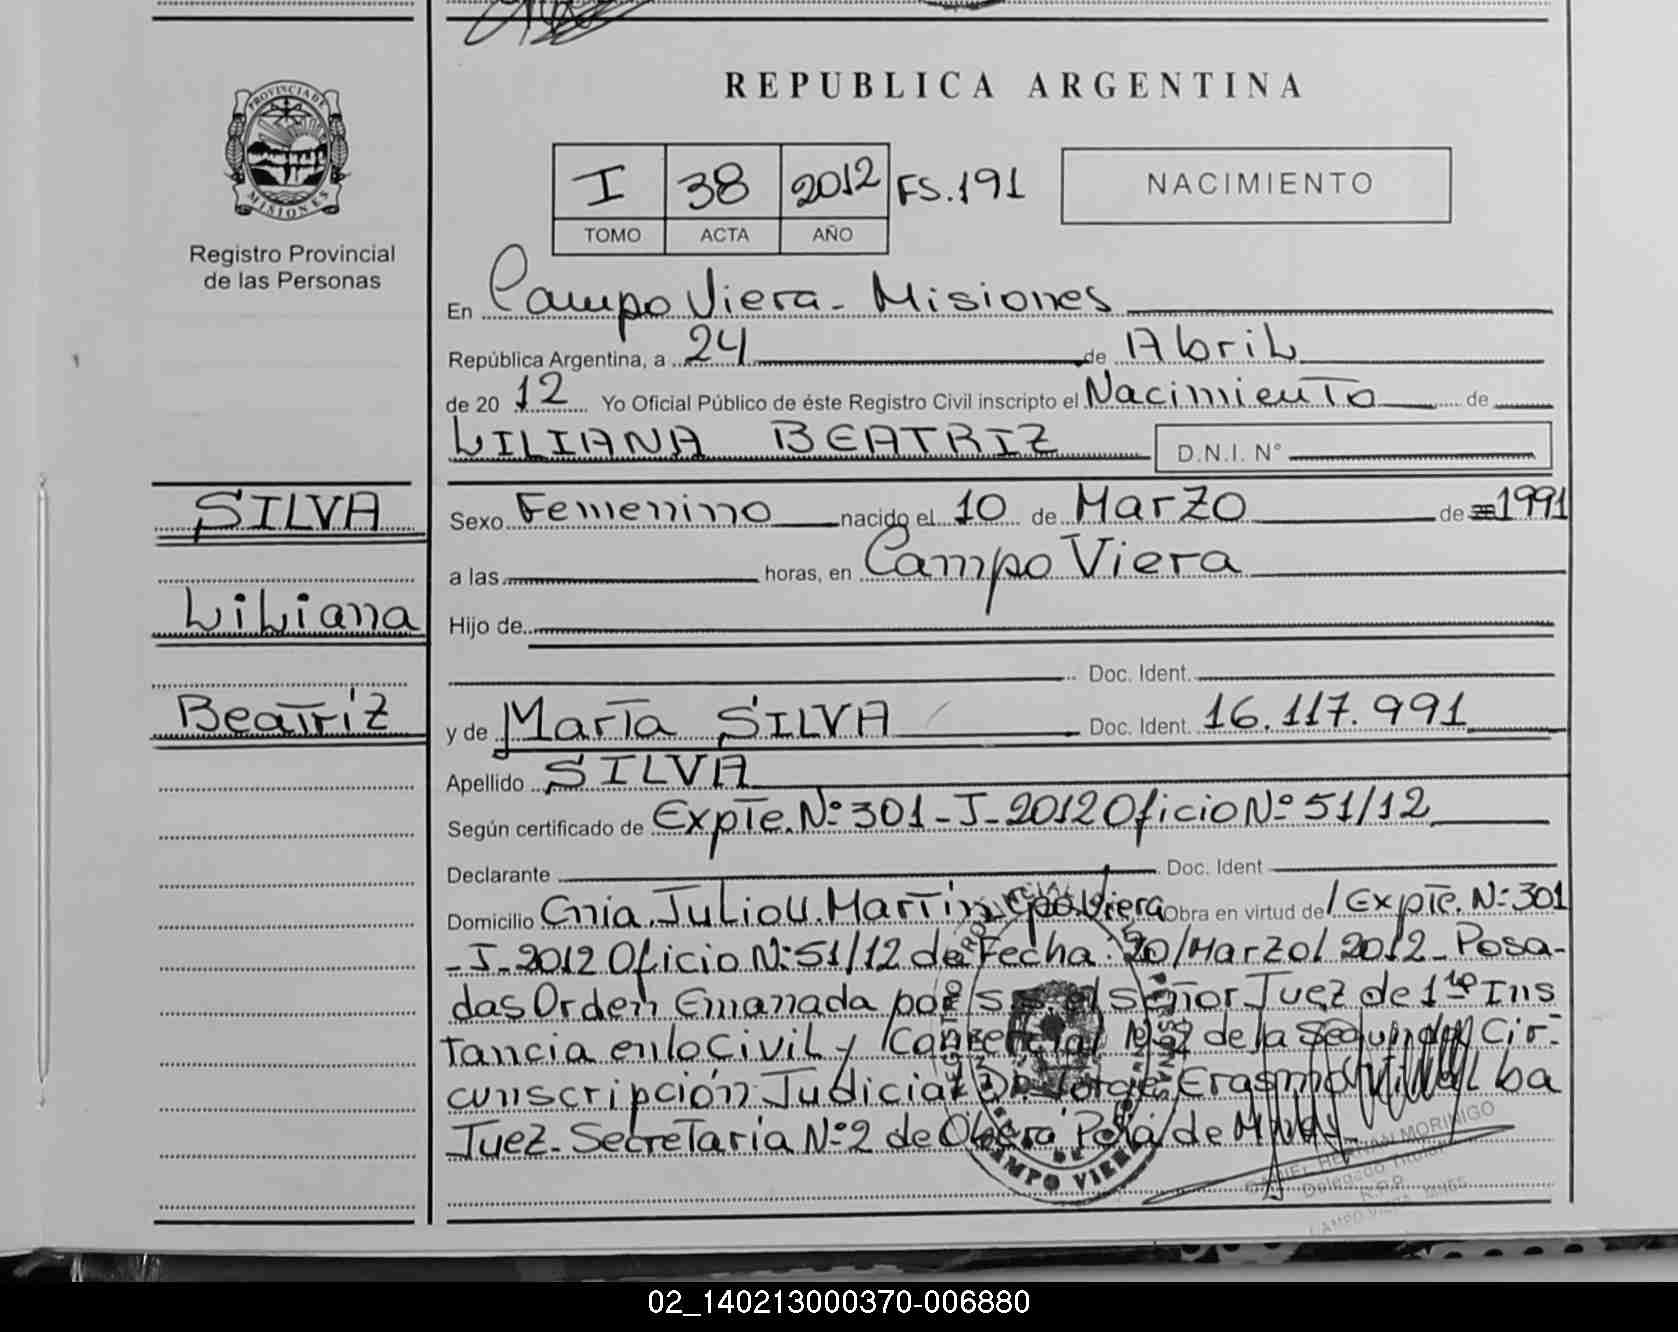 REPUBLICA ARGENTINA
PROVINCIA DE
MISIONES
Registro Provincial
de las Personas
I 38 2012 FS.191
TOMO ACTA AÑO
NACIMIENTO
En Campo Viera - Misiones
República Argentina, a 24 de Abril
de 20 12 Yo Oficial Público de éste Registro Civil inscripto el Nacimiento de
LILIANA BEATRIZ D.N.I. N°
SILVA
Liliana
Beatriz
Sexo Femenino nacido el 10 de Marzo de 1991
a las horas, en Campo Viera
Hijo de
Doc. Ident.
y de Marta SILVA Doc. Ident. 16.117.991
Apellido SILVA
Según certificado de Expte. Nº 301 - J - 2012 Oficio Nº 51/12
Declarante Doc. Ident
Domicilio Cnia. Julio U. Martin Cpo. Viera Obra en virtud de / Expte. Nº 301
- J - 2012 Oficio Nº 51/12 de Fecha: 20/Marzo/2012 - Posa-
das Orden Emanada por S.S. el Señor Juez de 1ª Ins
tancia en lo Civil y Comercial Nº 2 de la Segunda Cir-
cunscripción Judicial Dr. Jorge Erasmo
Juez - Secretaria Nº 2 de Oberá Pcia/de
CAMPO VIERA
DANIEL HERNAN MORINIGO
Delegado Titular
R.P.P.
CAMPO VIERA MNES
02_140213000370-006880